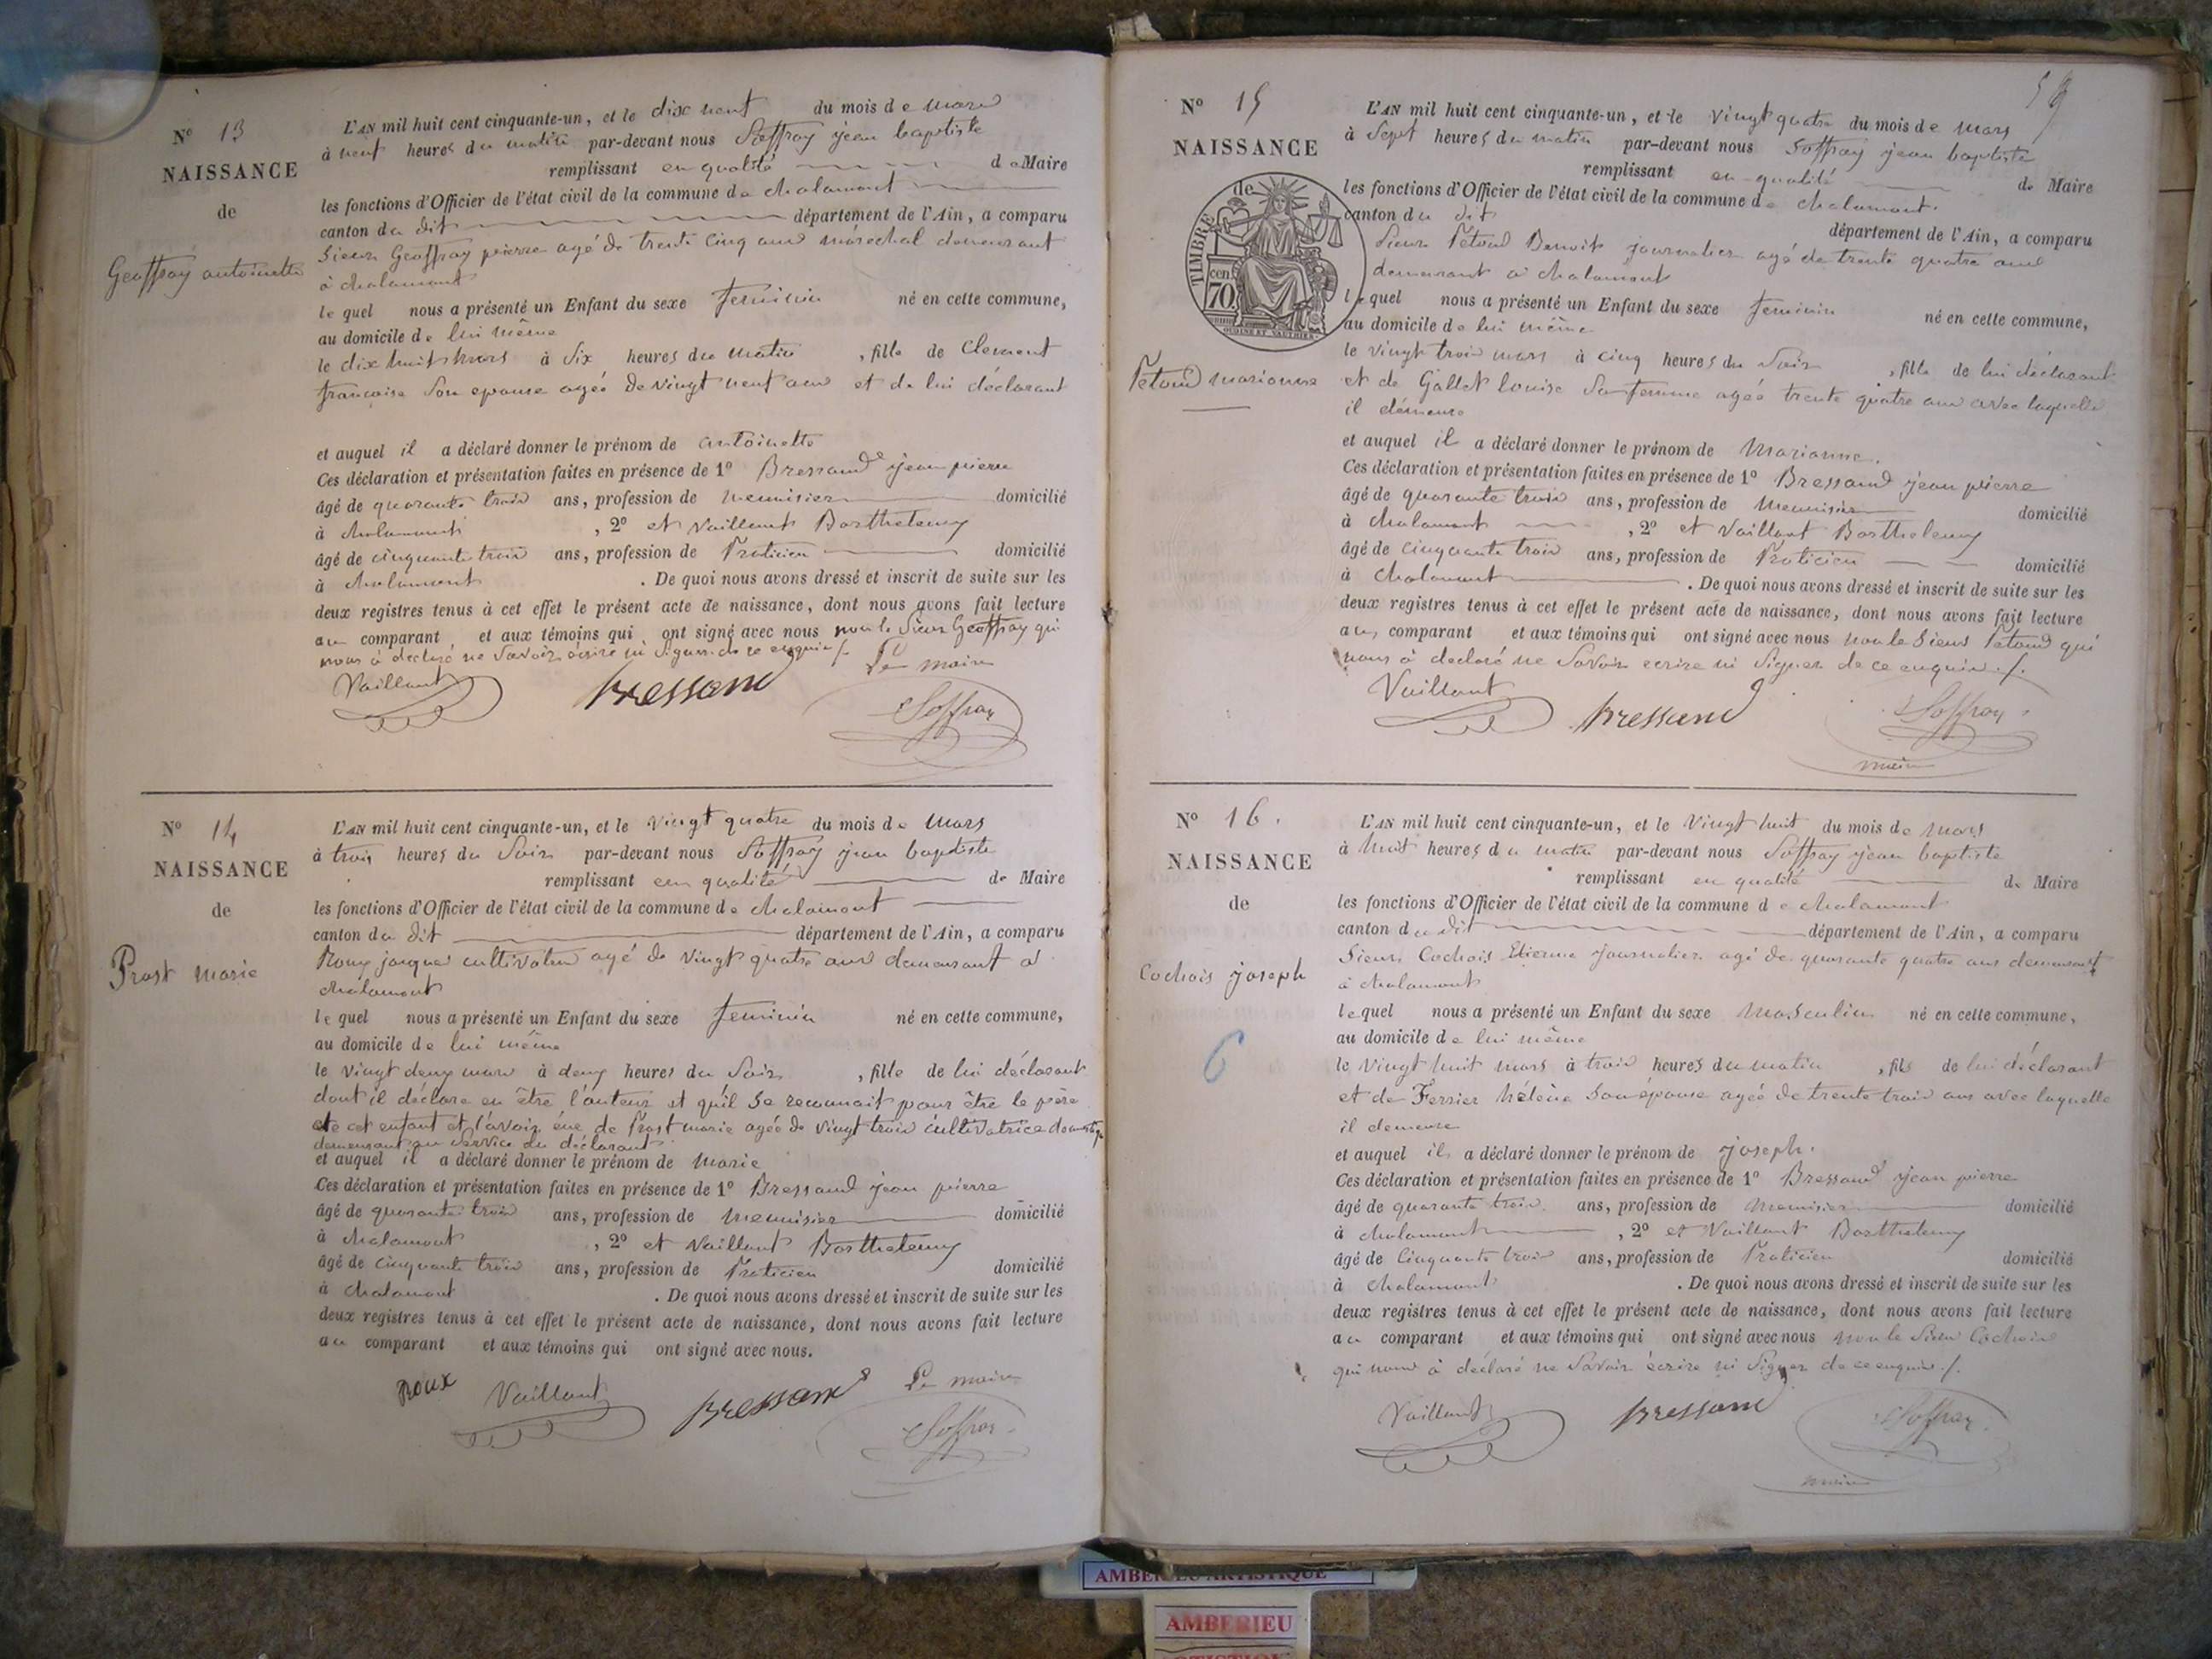 N° 13
NAISSANCE
de
Geoffray antoinette
L'AN mil huit cent cinquante-un, et le dix neuf du mois de mars
à neuf heures du matin par-devant nous Soffray jean baptiste
remplissant en qualité de Maire
les fonctions d'Officier de l'état civil de la commune de chalamont
canton du dit département de l'Ain, a comparu
Sieur Geoffray pierre agé de trente cinq ans maréchal demeurant
à chalamont
lequel nous a présenté un Enfant du sexe feminin né en cette commune,
au domicile de lui même
le dix huit mars à six heures du matin, fille de Clement
françoise son epouse agée de vingt neuf ans et de lui déclarant
et auquel il a déclaré donner le prénom de antoinette
Ces déclaration et présentation faites en présence de 1° Bressand jean pierre
âgé de quarante trois ans, profession de menuisier domicilié
à chalamont, 2° et Vaillant Barthelemy
âgé de cinquante trois ans, profession de Praticien domicilié
à chalamont. De quoi nous avons dressé et inscrit de suite sur les
deux registres tenus à cet effet le présent acte de naissance, dont nous avons fait lecture
au comparant et aux témoins qui ont signé avec nous non le Sieur Geoffray qui
nous à declaré ne Savoir écrire ni Signer de ce enquis /.
Le maire
Vaillant Bressand Soffray
N° 14
NAISSANCE
de
Prost marie
L'AN mil huit cent cinquante-un, et le vingt quatre du mois de mars
à trois heures du Soir par-devant nous Soffray jean baptiste
remplissant en qualité de Maire
les fonctions d'Officier de l'état civil de la commune de chalamont
canton du dit département de l'Ain, a comparu
Roux jacques cultivateur agé de vingt quatre ans demeurant à
chalamont
lequel nous a présenté un Enfant du sexe feminin né en cette commune,
au domicile de lui même
le vingt deux mars à deux heures du Soir, fille de lui déclarant
dont il déclare en être l'auteur et qu'il se reconnait pour être le père
de cet enfant et l'avoir eue de Prost marie agée de vingt trois cultivatrice domestique
demeurant au service du déclarant
et auquel il a déclaré donner le prénom de Marie
Ces déclaration et présentation faites en présence de 1° Bressand jean pierre
âgé de quarante trois ans, profession de menuisier domicilié
à chalamont, 2° et Vaillant Barthelemy
âgé de cinquante trois ans, profession de Praticien domicilié
à chalamont. De quoi nous avons dressé et inscrit de suite sur les
deux registres tenus à cet effet le présent acte de naissance, dont nous avons fait lecture
au comparant et aux témoins qui ont signé avec nous.
Roux Vaillant Bressand Le maire
Soffray
59
N° 15
NAISSANCE
de
TIMBRE
70 cen
Petoud marianne
L'AN mil huit cent cinquante-un, et le vingt quatre du mois de mars
à Sept heures du matin par-devant nous Soffray jean baptiste
remplissant en qualité de Maire
les fonctions d'Officier de l'état civil de la commune de chalamont
canton du dit
département de l'Ain, a comparu
Sieur Petoud Benoit journalier agé de trente quatre ans
demeurant à chalamont
lequel nous a présenté un Enfant du sexe feminin né en cette commune,
au domicile de lui même
le vingt trois mars à cinq heures du Soir, fille de lui déclarant
et de Gallet louise Sa femme agée trente quatre ans avec laquelle
il demeure
et auquel il a déclaré donner le prénom de Marianne.
Ces déclaration et présentation faites en présence de 1° Bressand jean pierre
âgé de quarante trois ans, profession de Menuisier domicilié
à chalamont, 2° et Vaillant Barthelemy
âgé de cinquante trois ans, profession de Praticien domicilié
à chalamont. De quoi nous avons dressé et inscrit de suite sur les
deux registres tenus à cet effet le présent acte de naissance, dont nous avons fait lecture
au, comparant et aux témoins qui ont signé avec nous non le Sieur Petoud qui
nous à declaré ne Savoir ecrire ni Signer de ce enquis. /.
Vaillant Bressand Soffray
maire
N° 16.
NAISSANCE
de
Cochois joseph
6
L'AN mil huit cent cinquante-un, et le vingt huit du mois de mars
à huit heures du matin par-devant nous Soffray jean baptiste
remplissant en qualité de Maire
les fonctions d'Officier de l'état civil de la commune de chalamont
canton du dit département de l'Ain, a comparu
Sieur Cochois Etienne journalier agé de quarante quatre ans demeurant
à chalamont
lequel nous a présenté un Enfant du sexe Masculin né en cette commune,
au domicile de lui même
le vingt huit mars à trois heures du matin, fils de lui déclarant
et de Ferrier hélène Son épouse agée de trente trois ans avec laquelle
il demeure
et auquel il a déclaré donner le prénom de joseph.
Ces déclaration et présentation faites en présence de 1° Bressand jean pierre
âgé de quarante trois ans, profession de Menuisier domicilié
à chalamont, 2° et Vaillant Barthelemy
âgé de Cinquante trois ans, profession de Praticien domicilié
à chalamont. De quoi nous avons dressé et inscrit de suite sur les
deux registres tenus à cet effet le présent acte de naissance, dont nous avons fait lecture
au comparant et aux témoins qui ont signé avec nous non le Sieur Cochois
qui nous à déclaré ne Savoir écrire ni Signer de ce enquis. /.
Vaillant Bressand Soffray
maire
AMBERIEU ARTISTIQUE
AMBERIEU